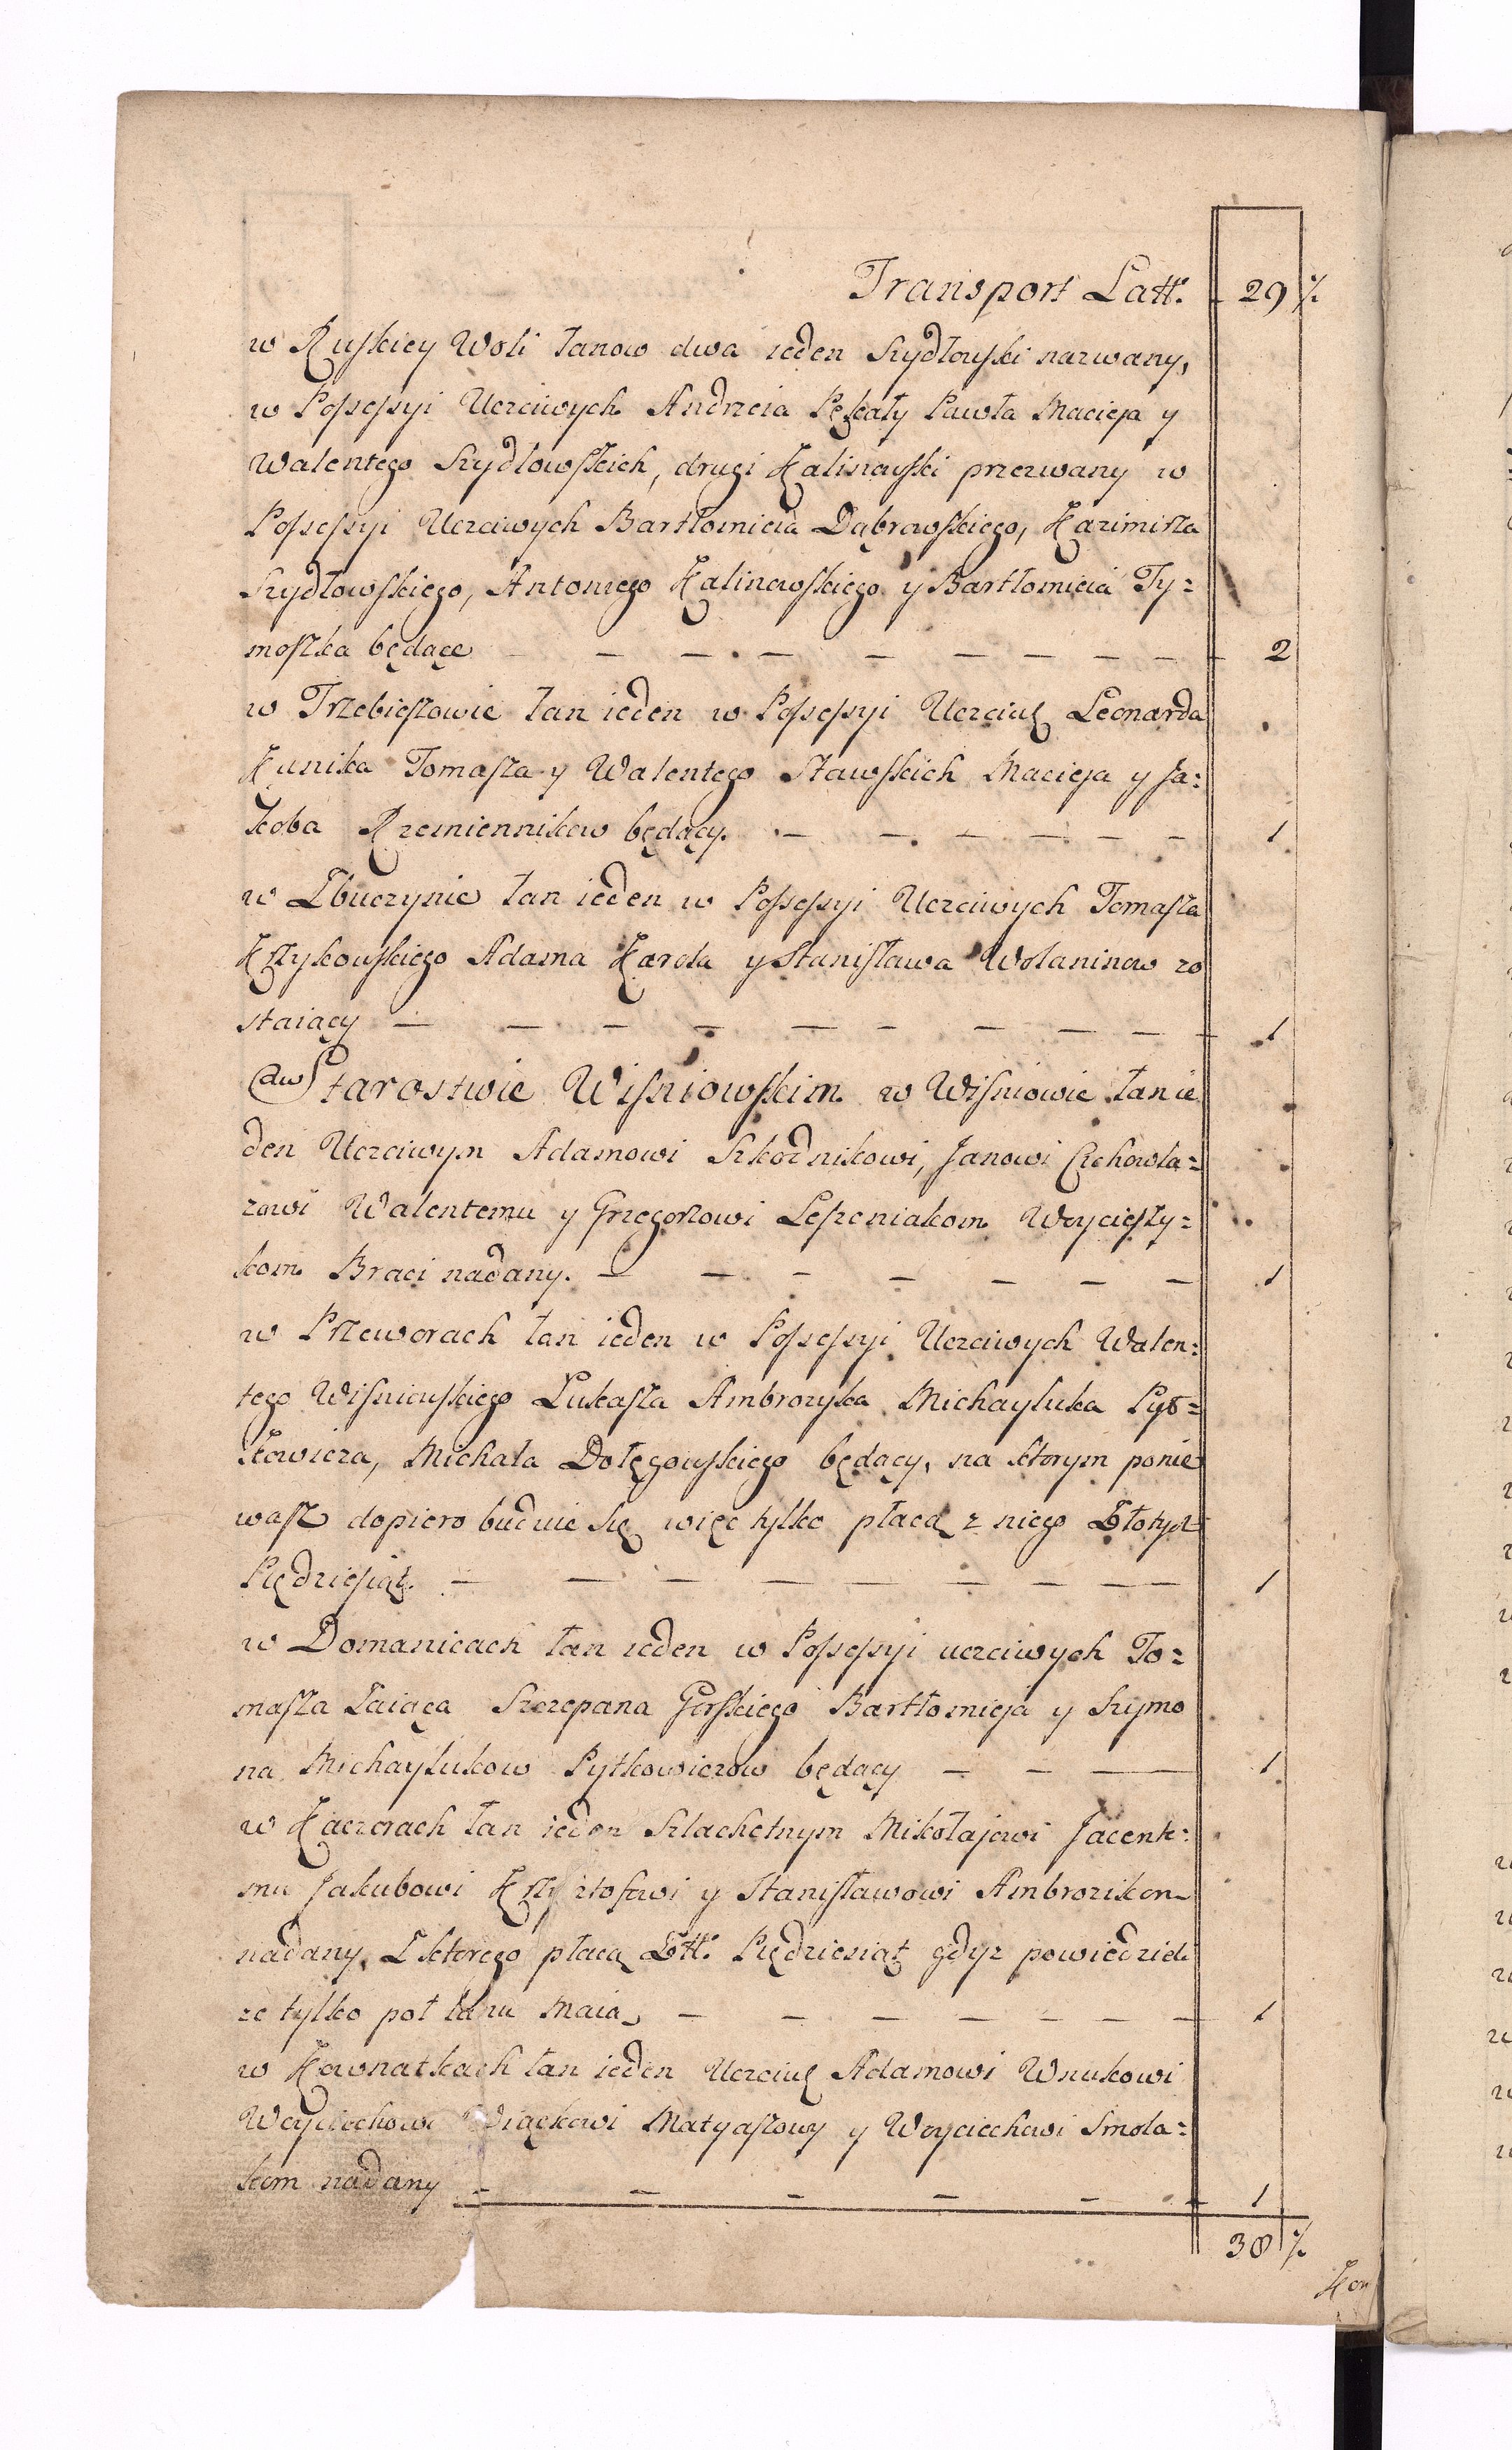 Transport Latt. 29 ⁒
w Ruskiey Woli łanow dwa ieden Szydłowski nazwany,
w Possessyi Uczciwych Andrzeia Pękały Pawła Macieja y
Walentego Szydłowskich, drugi Kalinowski przezwany w
Possessyi Uczciwych Bartłomieia Dąbrowskiego, Kazimirza
Szydłowskiego, Antoniego Kalinowskiego y Bartłomieia Ty=
moszka będące — — — — — — — — 2
w Trzebieszowie łan ieden w Possessyi Uczciwͺ Leonarda
Kunika Tomasza y Walentego Stawskich Macieja y Ja=
koba Rzemiennikow będący. — — — — — — 1
w Zbuczynie łan ieden w Possessyi Uczciwych Tomasza
Krzykowskiego Adama Karola y Stanisława Wolaninow zo
staiący — — — — — — — — — 1
(aw) Starostwie Wisniowskim w Wisniowie łan ie
den Uczciwym Adamowi Szkodnikowi, Janowi Czehowla=
zowi Walentemu y Grzegorzowi Leszeniakom Woycieszy=
kom Braci nadany. — — — — — — — 1
w Przeworach łan ieden w Possessyi Uczciwych Walen=
tego Wisniewskiego Łukasza Ambrozyka Michayluka Pyt=
kowicza, Michała Dołęgowskiego będący, na ktorym ponie
wasz dopiero buduie się więc tylko płacą z niego Złotych
Pięćdziesiąt. — — — — — — — — — 1
w Domanicach łan ieden w Possessyi uczciwych To=
masza Zaiąca Szczepana Gorskiego Bartłomieja y Szymo
na Michaylukow Pytkowiczow będący — — — 1
w Kaczorach łan ieden Szlachetnym Mikołajowi Jacente=
mu Jakubowi Krzysztofowi y Stanisławowi Ambrozikom
nadany, Z ktorego płacą Złł. Pięćdziesiąt gdyz powiedzieli
ze tylko poł łanu maią — — — — — — — 1
w Kownatkach łan ieden Uczciwͺ Adamowi Wnukowi
Woyciechowi Wiąckowi Matyaszowy y Woyciechowi Smola=
kom nadany — — — — — — 1
38 ⁒
Kon